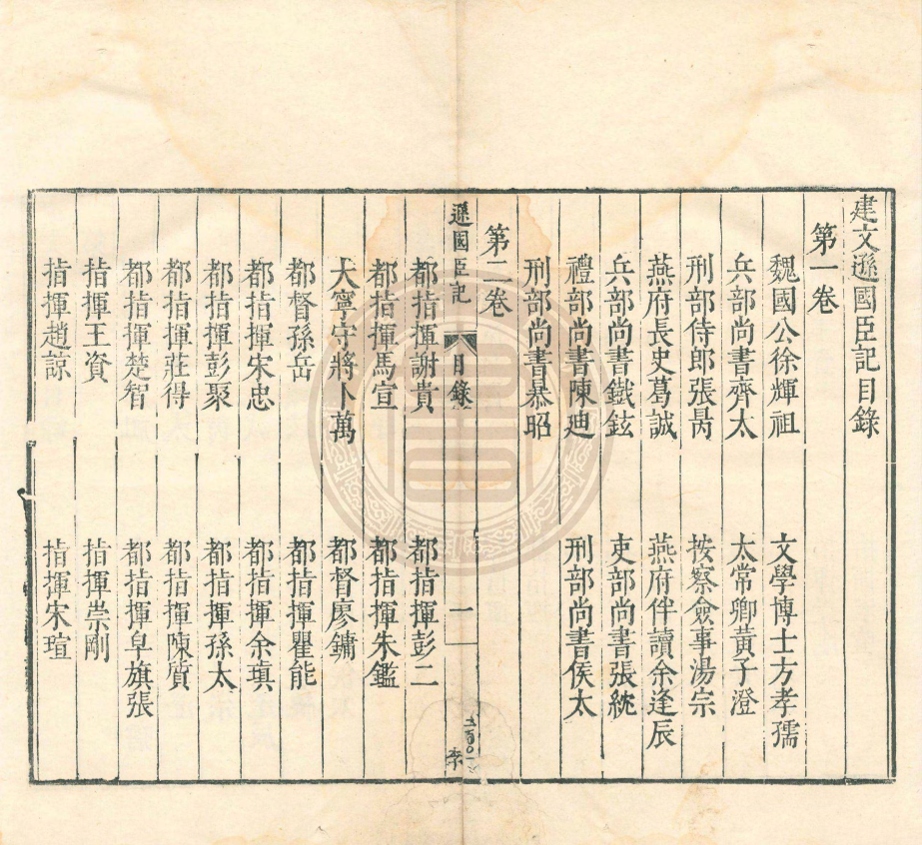 建文遜國臣記目錄
第一卷
魏國公徐輝祖 文學博士方孝孺
兵部尚書齊太 太常卿黃子澄
刑部侍郎張昺 按察僉事湯宗
燕府長史葛誠 燕府伴讀余逢辰
兵部尚書鐵鉉 吏部尚書張紞
禮部尚書陳迪 刑部尚書侯太
刑部尚書暴昭
第二卷
遜國臣記 目錄 一
都指揮謝貴 都指揮彭二
都指揮馬宣 都指揮朱鑑
大寧守將卜萬 都督廖鏞
都督孫岳 都指揮瞿能
都指揮宋忠 都指揮余瑱
都指揮彭聚 都指揮孫太
都指揮莊得 都指揮陳質
都指揮楚智 都指揮皁旗張
指揮王資 指揮崇剛
指揮趙諒 指揮宋瑄